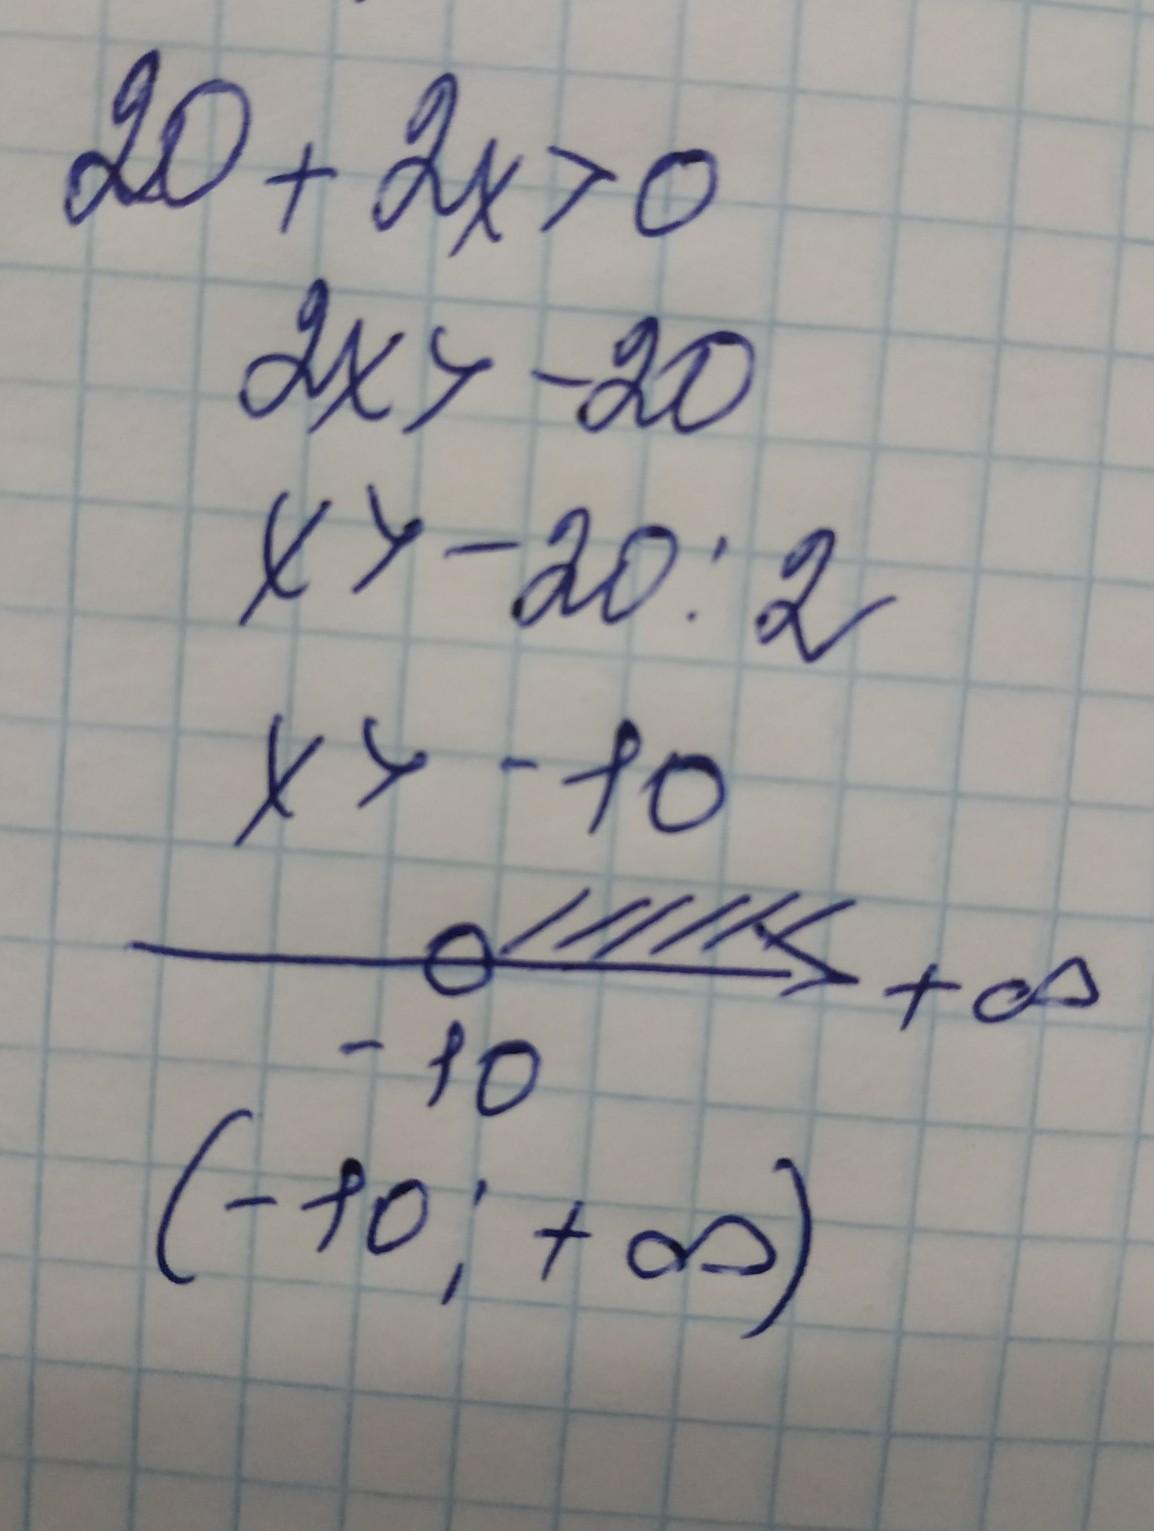 20 + 2x > 0
2x > -20
x > -20 : 2
x > -10
+ ∞
-10
(-10; + ∞)